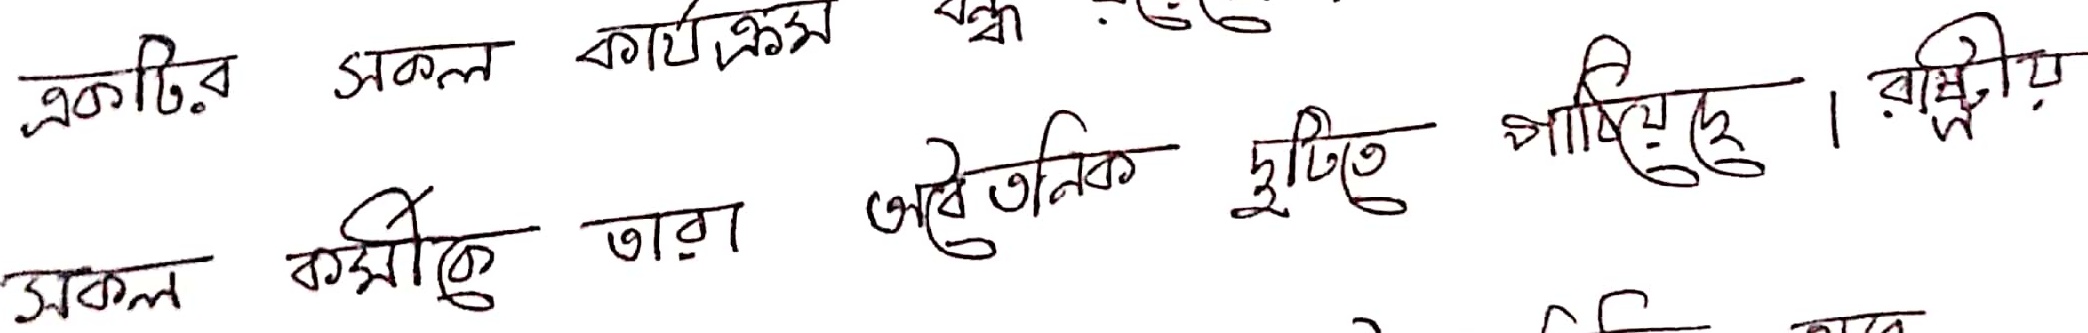 একটির সকল কার্যক্রম বন্ধ রয়েছে
সকল কর্মীকে তারা অবৈতনিক ছুটিতে পাঠিয়েছে । রাষ্ট্রীয়